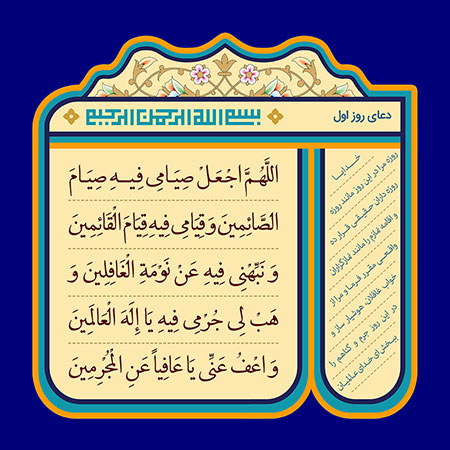 دعای روز اول
بسم الله الرحمن الرحیم
اللَّهُمَّ اجْعَلْ صِيَامِي فِيهِ صِيَامَ
الصَّائِمِينَ وَ قِيَامِي فِيهِ قِيَامَ الْقَائِمِينَ
وَ نَبِّهْنِي فِيهِ عَنْ نَوْمَةِ الْغَافِلِينَ وَ
هَبْ لِي جُرْمِي فِيهِ يَا إِلَهَ الْعَالَمِينَ
وَ اعْفُ عَنِّي يَا عَافِياً عَنِ الْمُجْرِمِينَ
خدایا
روزه مرا در این روز مانند روزه
روزه داران حقیقی قرار ده
و اقامه نمازم را مانند نمازگزاران
واقعی مقرر فرما و مرا از
خواب غافلان، هوشیار ساز و
در این روز جرم و گناهم را
ببخش ای خدای عالمیان